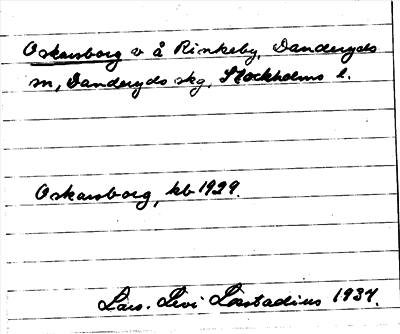 Oskarsborg v å Rinkeby, Danderyds
sn, Danderyds skg, Stockholms l.
Oskarsborg, kb 1929.
Lars-Levi Læstadius 1937.